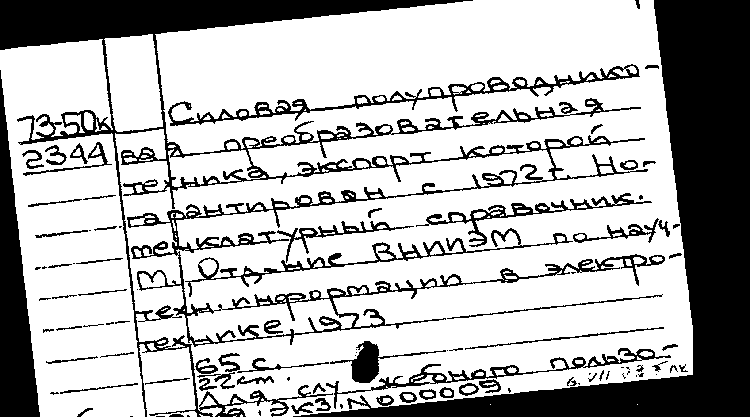 73:50к
2344
Силовая полупроводнико-
вая преобразовательная
техника, экспорт которой
гарантирован с 1972г. Но-
менклатурный справочник.
М., Отд-ние ВНИИЭМ по науч-
техн. информации в электро-
технике, 1973.
65 с.
22 см.
Для служебного пользо-
Экз. N 000009.